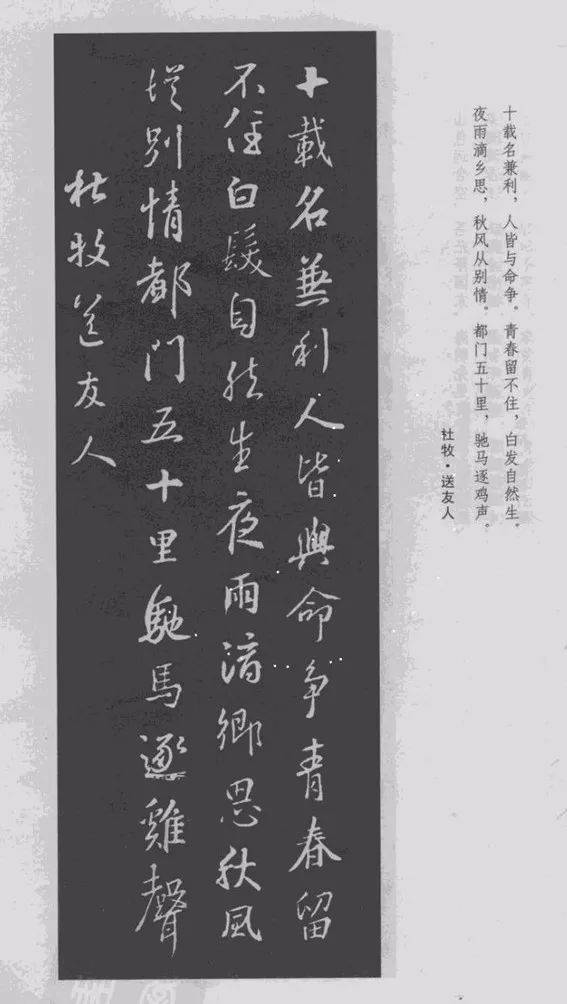 十载名兼利，人皆与命争。青春留不住，白发自然生。
夜雨滴乡思，秋风从别情。都门五十里，驰马逐鸡声。
杜牧·送友人
十載名兼利人皆與命争青春留
不住白髮自然生夜雨滴鄉思秋風
從别情都門五十里馳馬逐雞聲
杜牧送友人